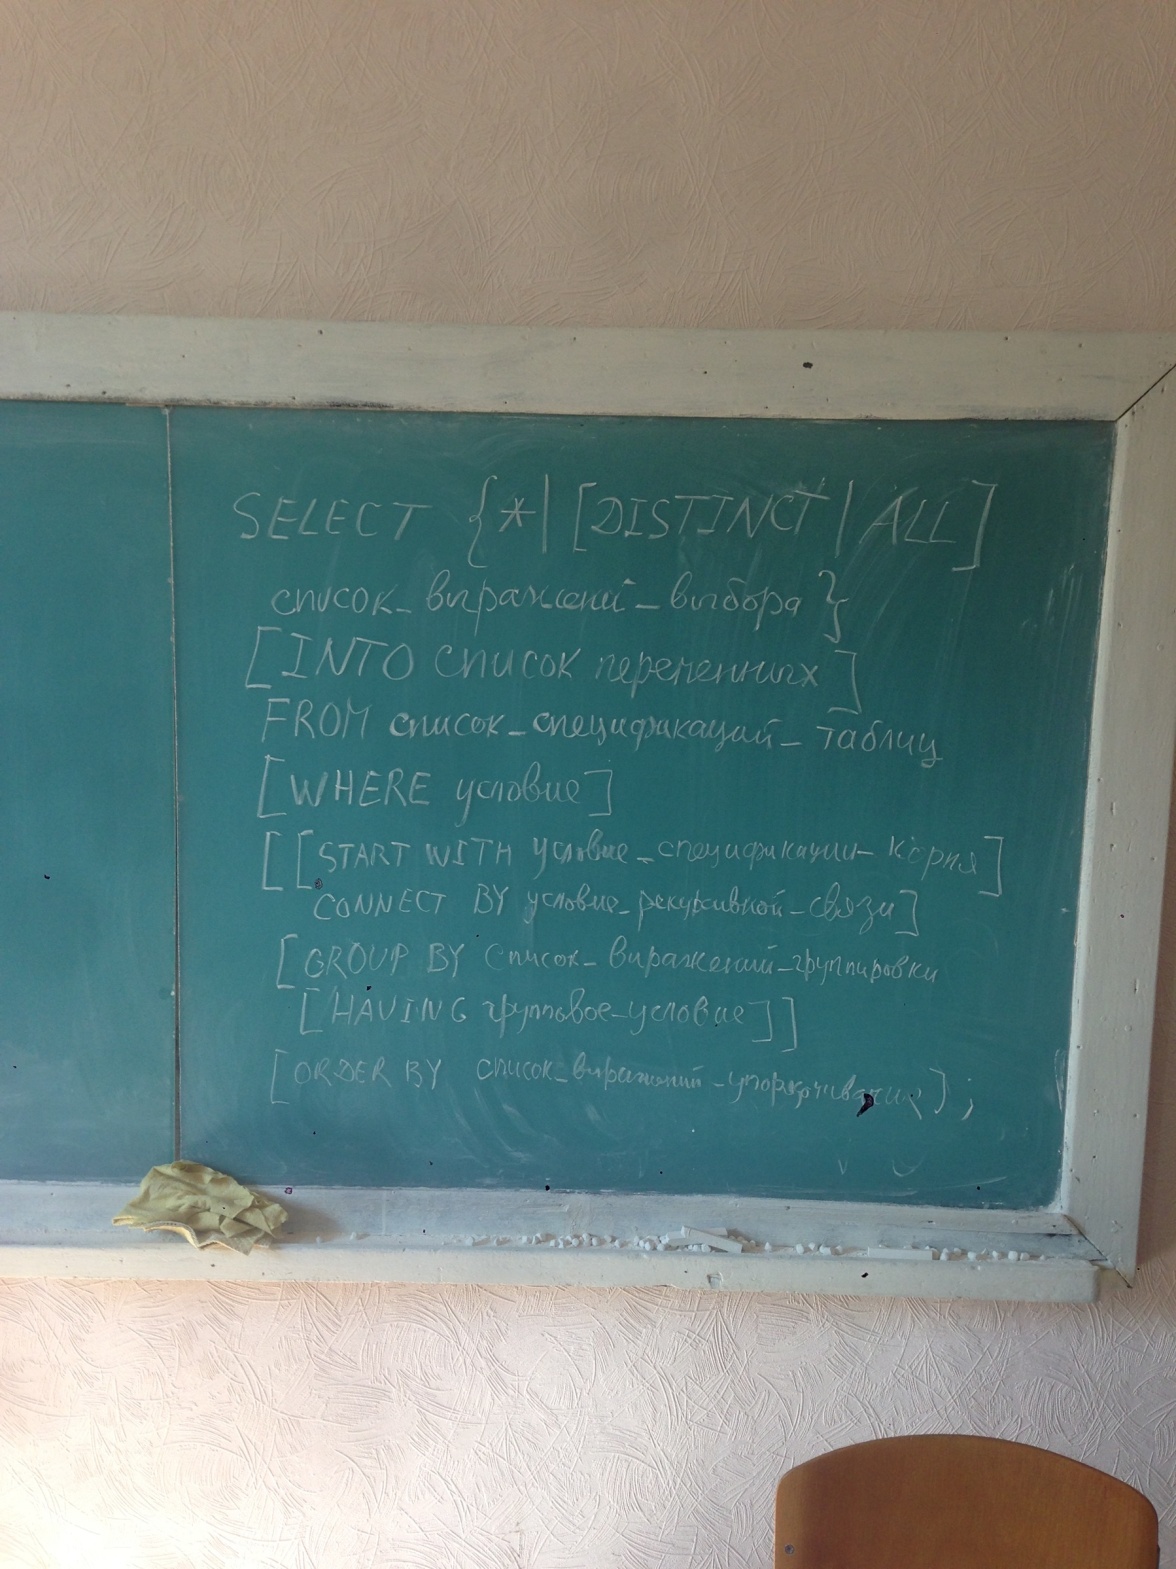 SELECT {*| [DISTINCT | ALL]
список_выражений_выбора}
[INTO список переменных]
FROM список_спецификаций_таблиц
[WHERE условие]
[[START WITH условие_спецификации_корня]
CONNECT BY условие_рекурсивной_связи]
[GROUP BY список_выражений_группировки
[HAVING групповое_условие]]
[ORDER BY список_выражений_упорядочивания];